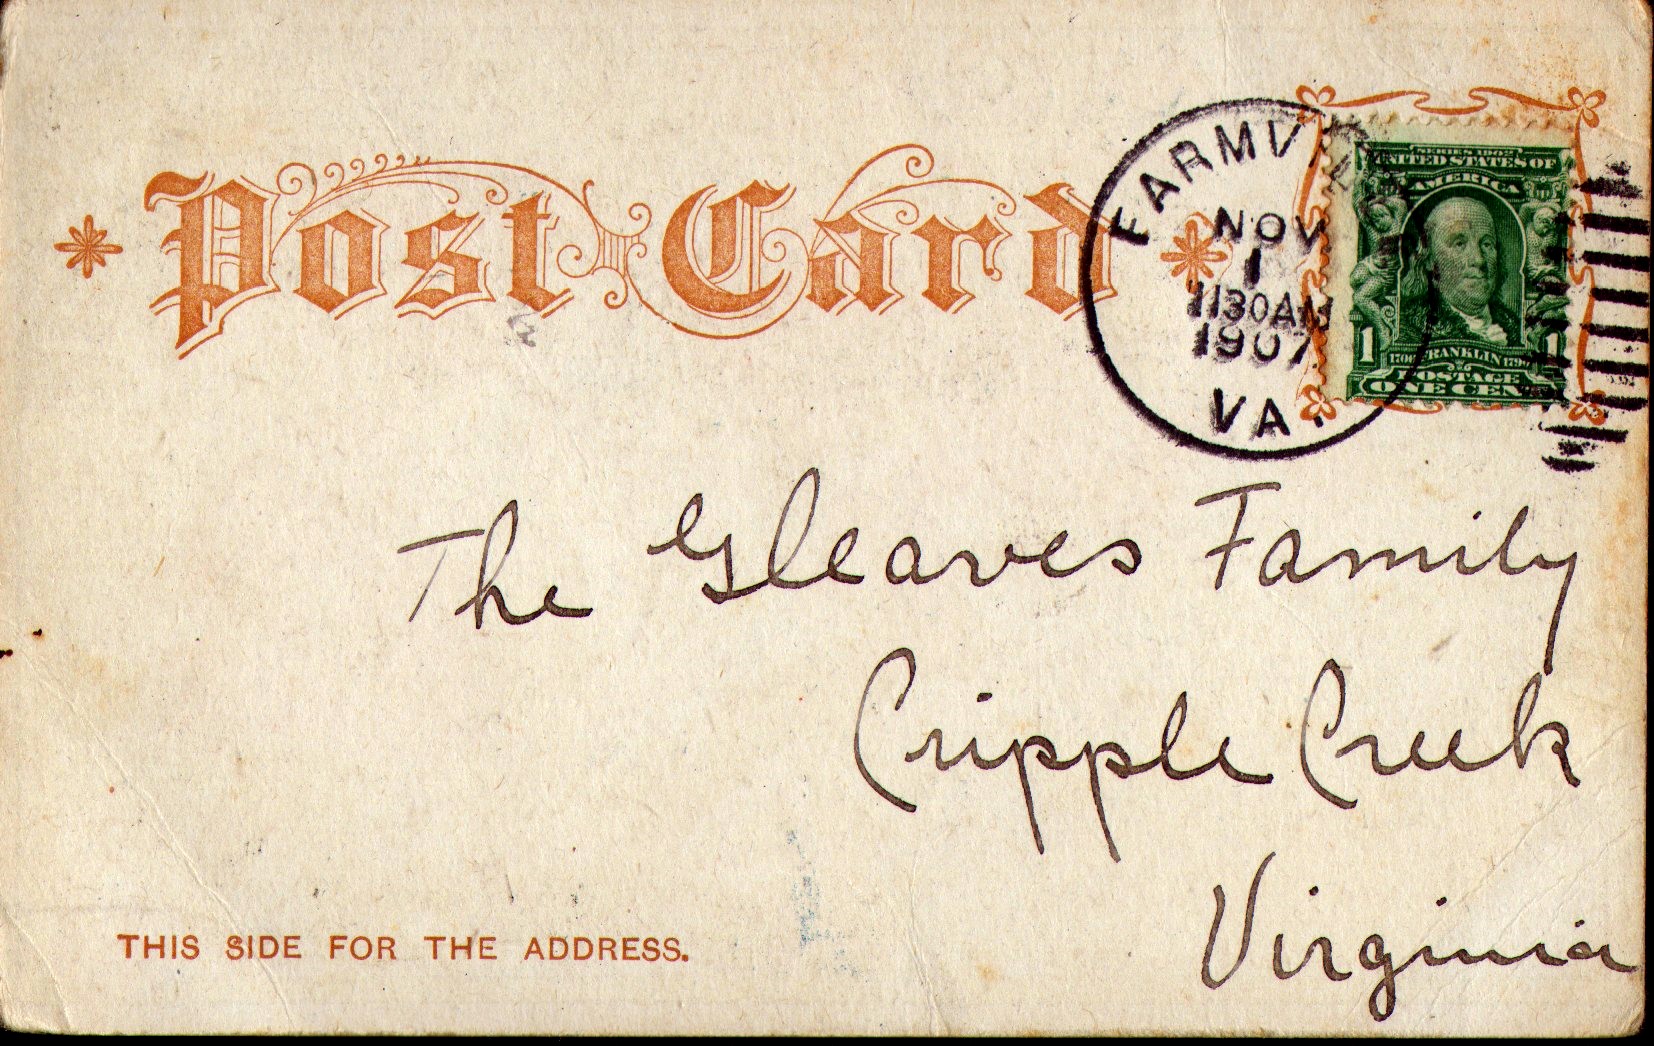 Post Card
FARMVILLE
NOV
1
1130AM
1907
VA.
SERIES 1902
UNITED STATES OF
AMERICA
1706 FRANKLIN 1790
1 1
POSTAGE
ONE CENT
The Gleaves Family
Cripple Creek
Virginia
THIS SIDE FOR THE ADDRESS.